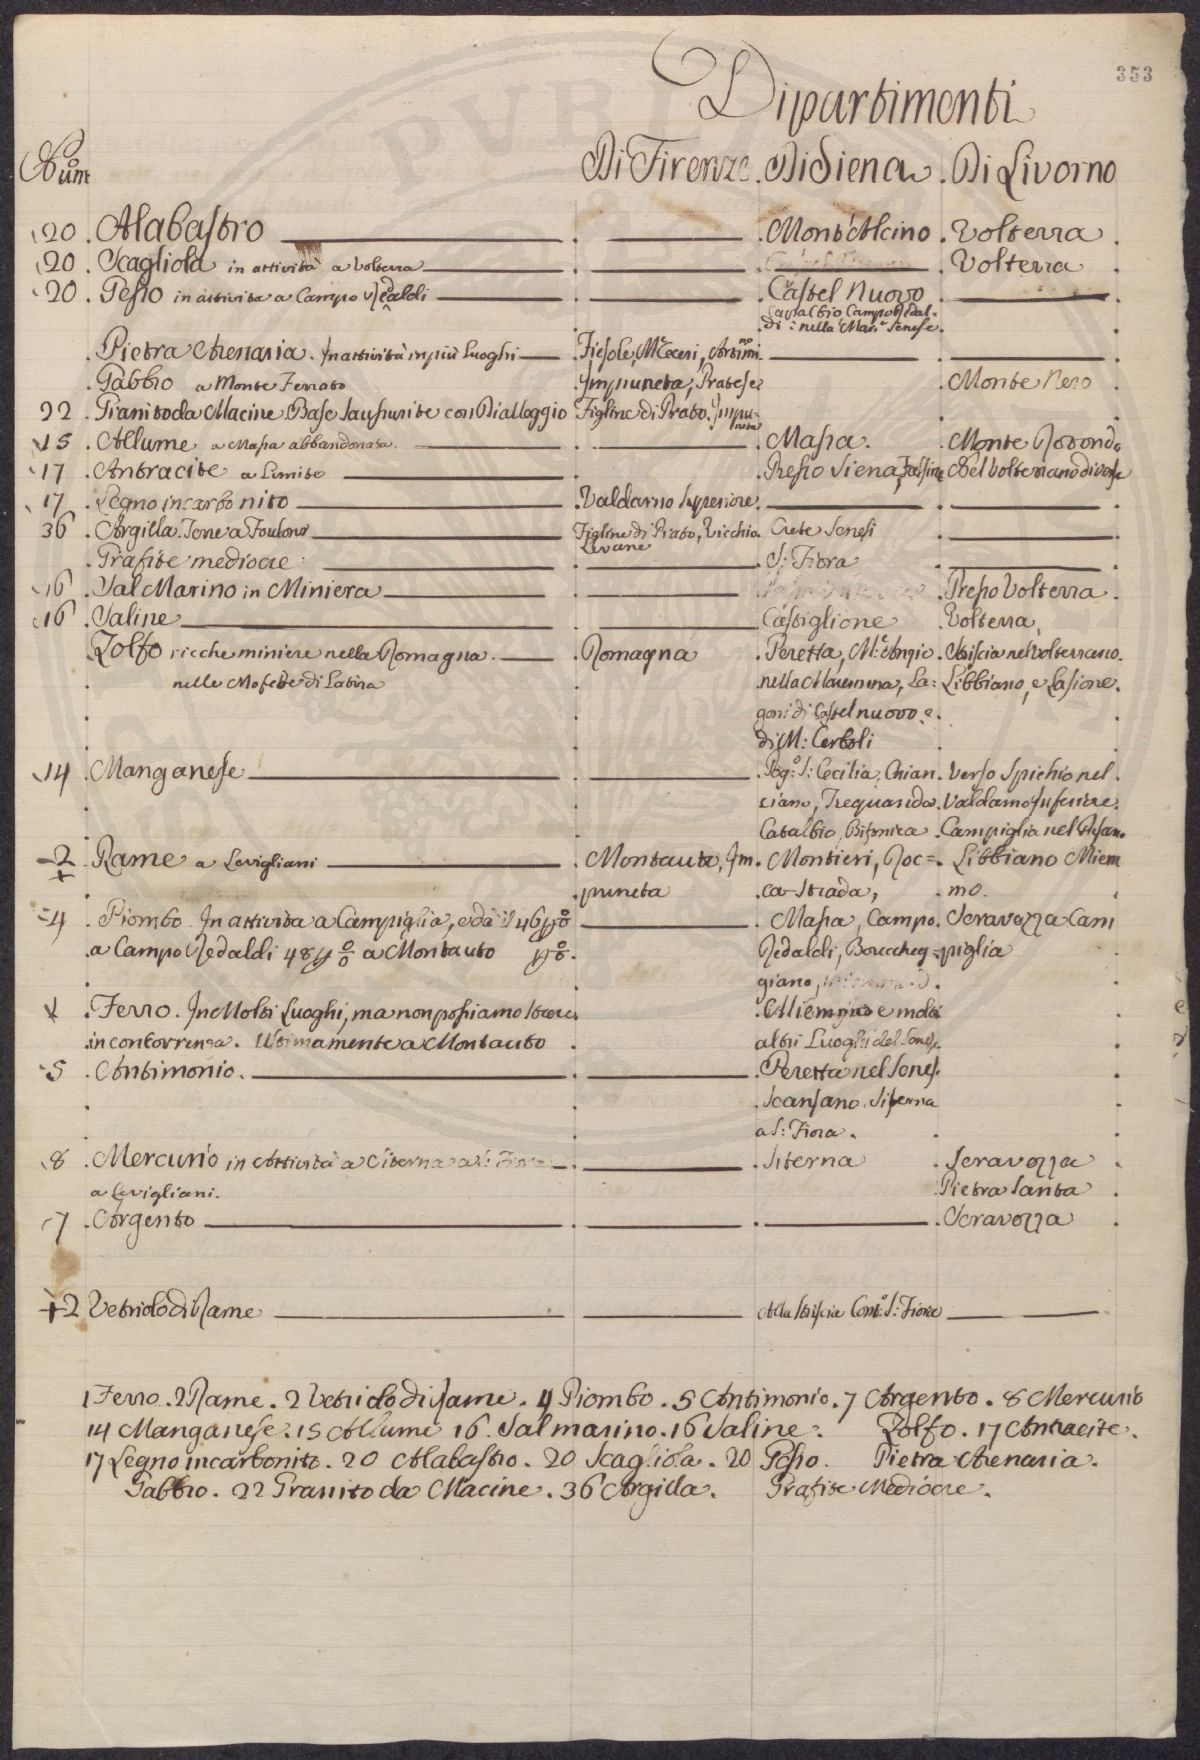 353
Dipartimenti
Num Di Firenze. Di Siena. Di Livorno
20. Alabastro . Mont'Alcino. Volterra.
20. Scagliola in attività a Volterra . Volterra.
20. Gesso in attività a Campo Redaldi . Castel Nuovo.
Capalbio Campo Redal-
di: nella Mar.a Senese.
. Pietra Arenaria. In attività in più Luoghi . Fiesole, M.te Ceceri, Artimino.
. Gabbro a Monte Ferrato . Impruneta, Pratese. . Monte Nero.
22 . Granito da Macine. Base Saussurite con Diallaggio Figline di Prato. Impru-
neta
15 . Allume a Massa abbandonata. . Massa. . Monte Rotondo
17 . Antracite a Limite . Presso Siena, . Del Volterrano diverse
17 . Legno incarbonito . Valdarno Superiore.
36 . Argilla. Terre a Foulons . Figline di Prato, Vicchio. Crete Senesi
Levane
. Grafite mediocre . S: Fiora
16 . Sal Marino in Miniera . Presso Volterra.
16 . Saline . Castiglione . Volterra,
. Zolfo ricche miniere nella Romagna. . Romagna . Peretta, M:te Argio . Striscia nel Volterrano.
nelle Mofette di Latira . nella Maremma, La= . Libbiano, e Casione.
goni di Castel nuovo e.
di M: Cerboli
14 . Manganese . Pog:o S: Cecilia, Chian . Verso Spichio nel.
ciano, Trequanda . Valdarno Inferiore.
Capalbio, . Campiglia nel Pisano
2 . Rame a Levigliani . Montauto, Im . Montieri, Roc= . Libbiano Miem
. pruneta . ca Strada, . mo.
4 . Piombo. In attività a Campiglia, e dà il 46 p 0/0 . Massa, Campo . Seravezza Cam
. a Campo Redaldi 48 p 0/0 a Montauto p 0/0. Redaldi, Boccheg= piglia
giano,
. Ferro. In Molti Luoghi, ma non possiamo stare . Miemmo e molti
. in concorrenza. Ultimamente a Montauto . altri Luoghi del Senese.
5 . Antimonio. . Peretta nel Senes.
. Scansano. Siterna
a S: Fiora.
8 . Mercurio in Attività a Citerna a S: Fiora . Siterna . Seravezza
a Levigliani. . Pietra Santa
7 . Argento . Seravezza
+2 Vetriolo di Rame Alla Striscia Cont:o S: Fiora
1 Ferro. 2 Rame. 2 Vetriolo di Rame. 4 Piombo. 5 Antimonio. 7 Argento. 8 Mercurio
14 Manganese. 15 Allume 16. Sal marino. 16 Saline. Zolfo. 17 Antracite.
17 Legno incarbonito. 20 Alabastro. 20 Scagliola. 20 Gesso. Pietra Arenaria.
Gabbro. 22 Granito da Macine. 36 Argilla. Grafite Mediocre.